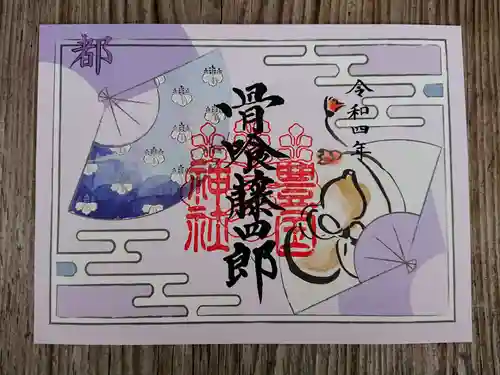 都
令和四年
骨喰藤四郎
豊国
神社